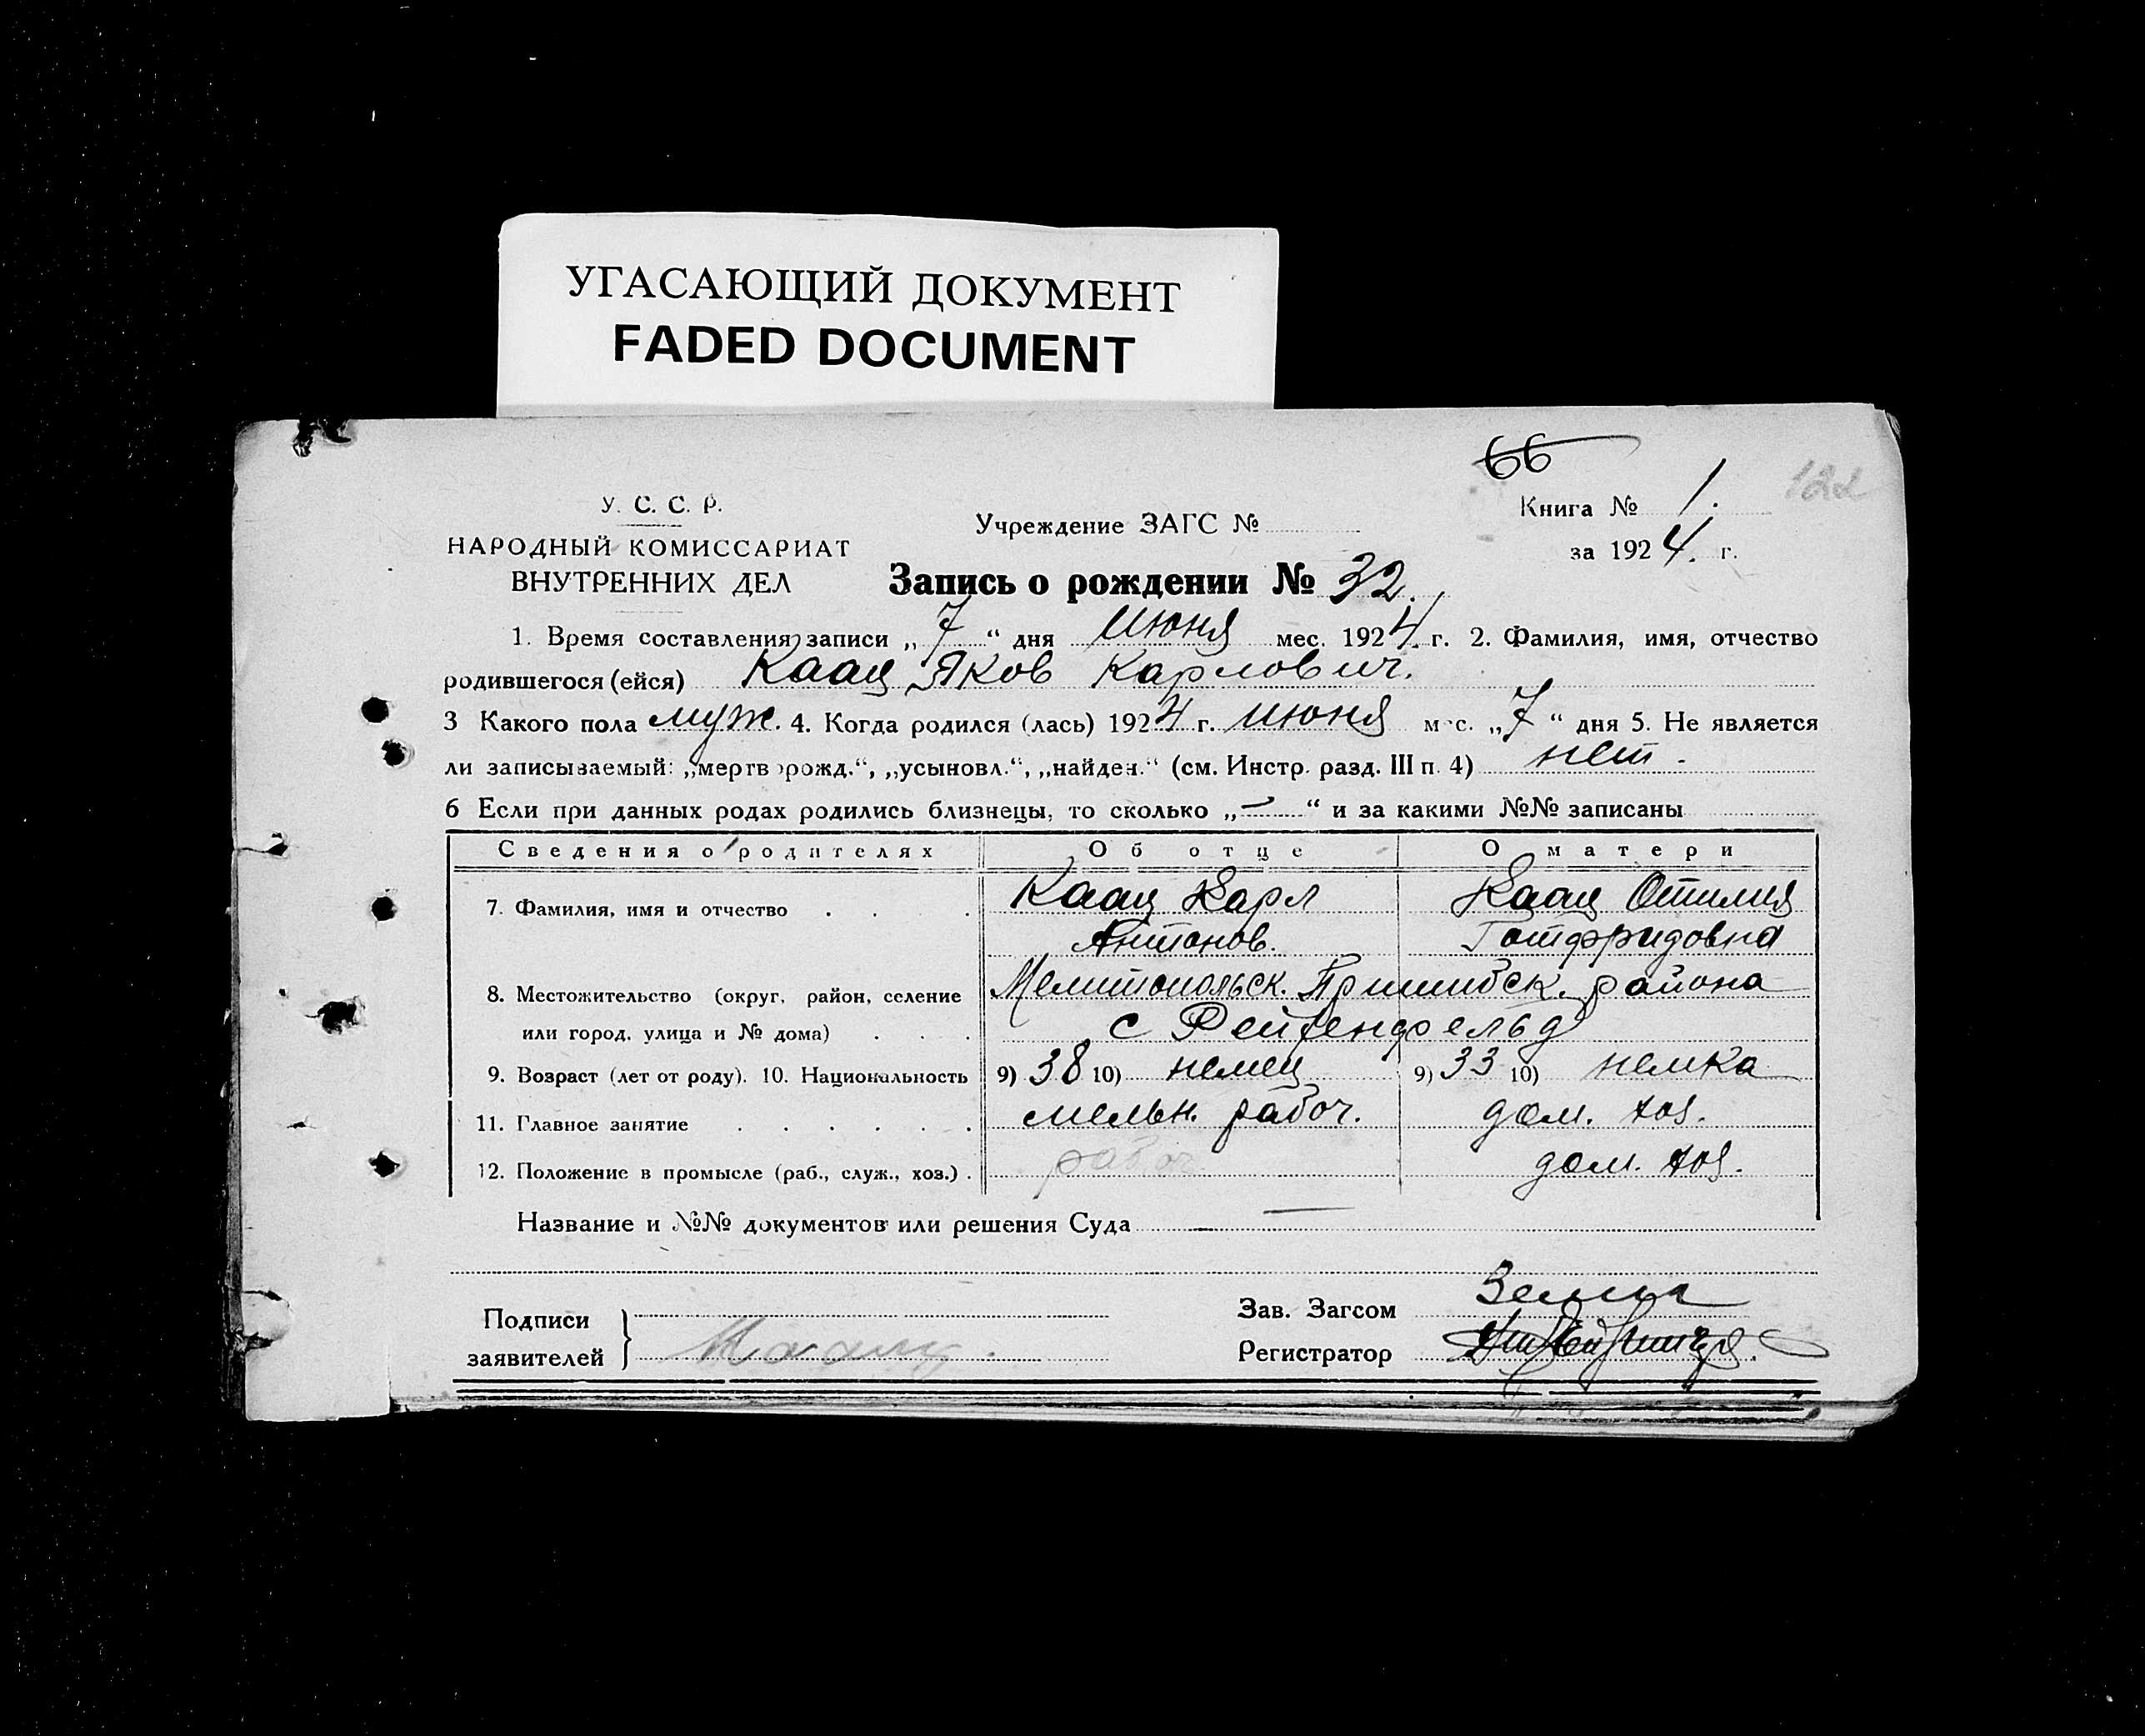 УГАСАЮЩИЙ ДОКУМЕНТ
FADED DOCUMENT
66
У. С. С. Р.
НАРОДНЫЙ КОМИССАРИАТ
ВНУТРЕННИХ ДЕЛ
Учреждение ЗАГС №
Книга № 1.
122
за 1924. г.
Запись о рождении № 32.
1. Время составления записи „7“ дня июня мес. 1924. г. 2. Фамилия, имя, отчество
родившегося (ейся) Каац Яков Карлович.
3 Какого пола муж. 4. Когда родился (лась) 1924 г. июня мес. „7“ дня 5. Не является
ли записываемый: „мертворожд.“, „усыновл.“, „найден.“ (см. Инстр. разд. III п. 4) нет.
6 Если при данных родах родились близнецы, то сколько „—“ и за какими №№ записаны
Сведения о родителях Об отце О матери
7. Фамилия, имя и отчество Каац Карл Каац Отилия
Антонов. Готфридовна
8. Местожительство (округ, район, селение Мелитопольск. Пришибск. района
или город, улица и № дома) с Рейхенфельд
9. Возраст (лет от роду). 10. Национальность 9) 38 10) немец 9) 33 10) немка
11. Главное занятие мельн. рабоч. дом. хоз.
12. Положение в промысле (раб., служ., хоз.) рабоч дом. хоз.
Название и №№ документов или решения Суда —
Подписи
заявителей Каац.
Зав. Загсом
Регистратор